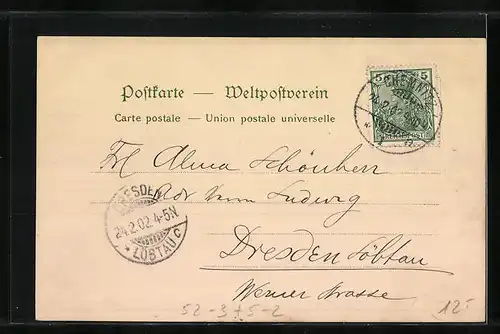 Postkarte — Weltpostverein
Carte postale — Union postale universelle
5 5
CHEMNITZ
Frl Alma Schönherr
Adr Ludwig
Dresden Löbtau
Werner strasse
DRESDEN
24.2.02.4-5N.
* LÖBTAU c
52-375-2
12.-